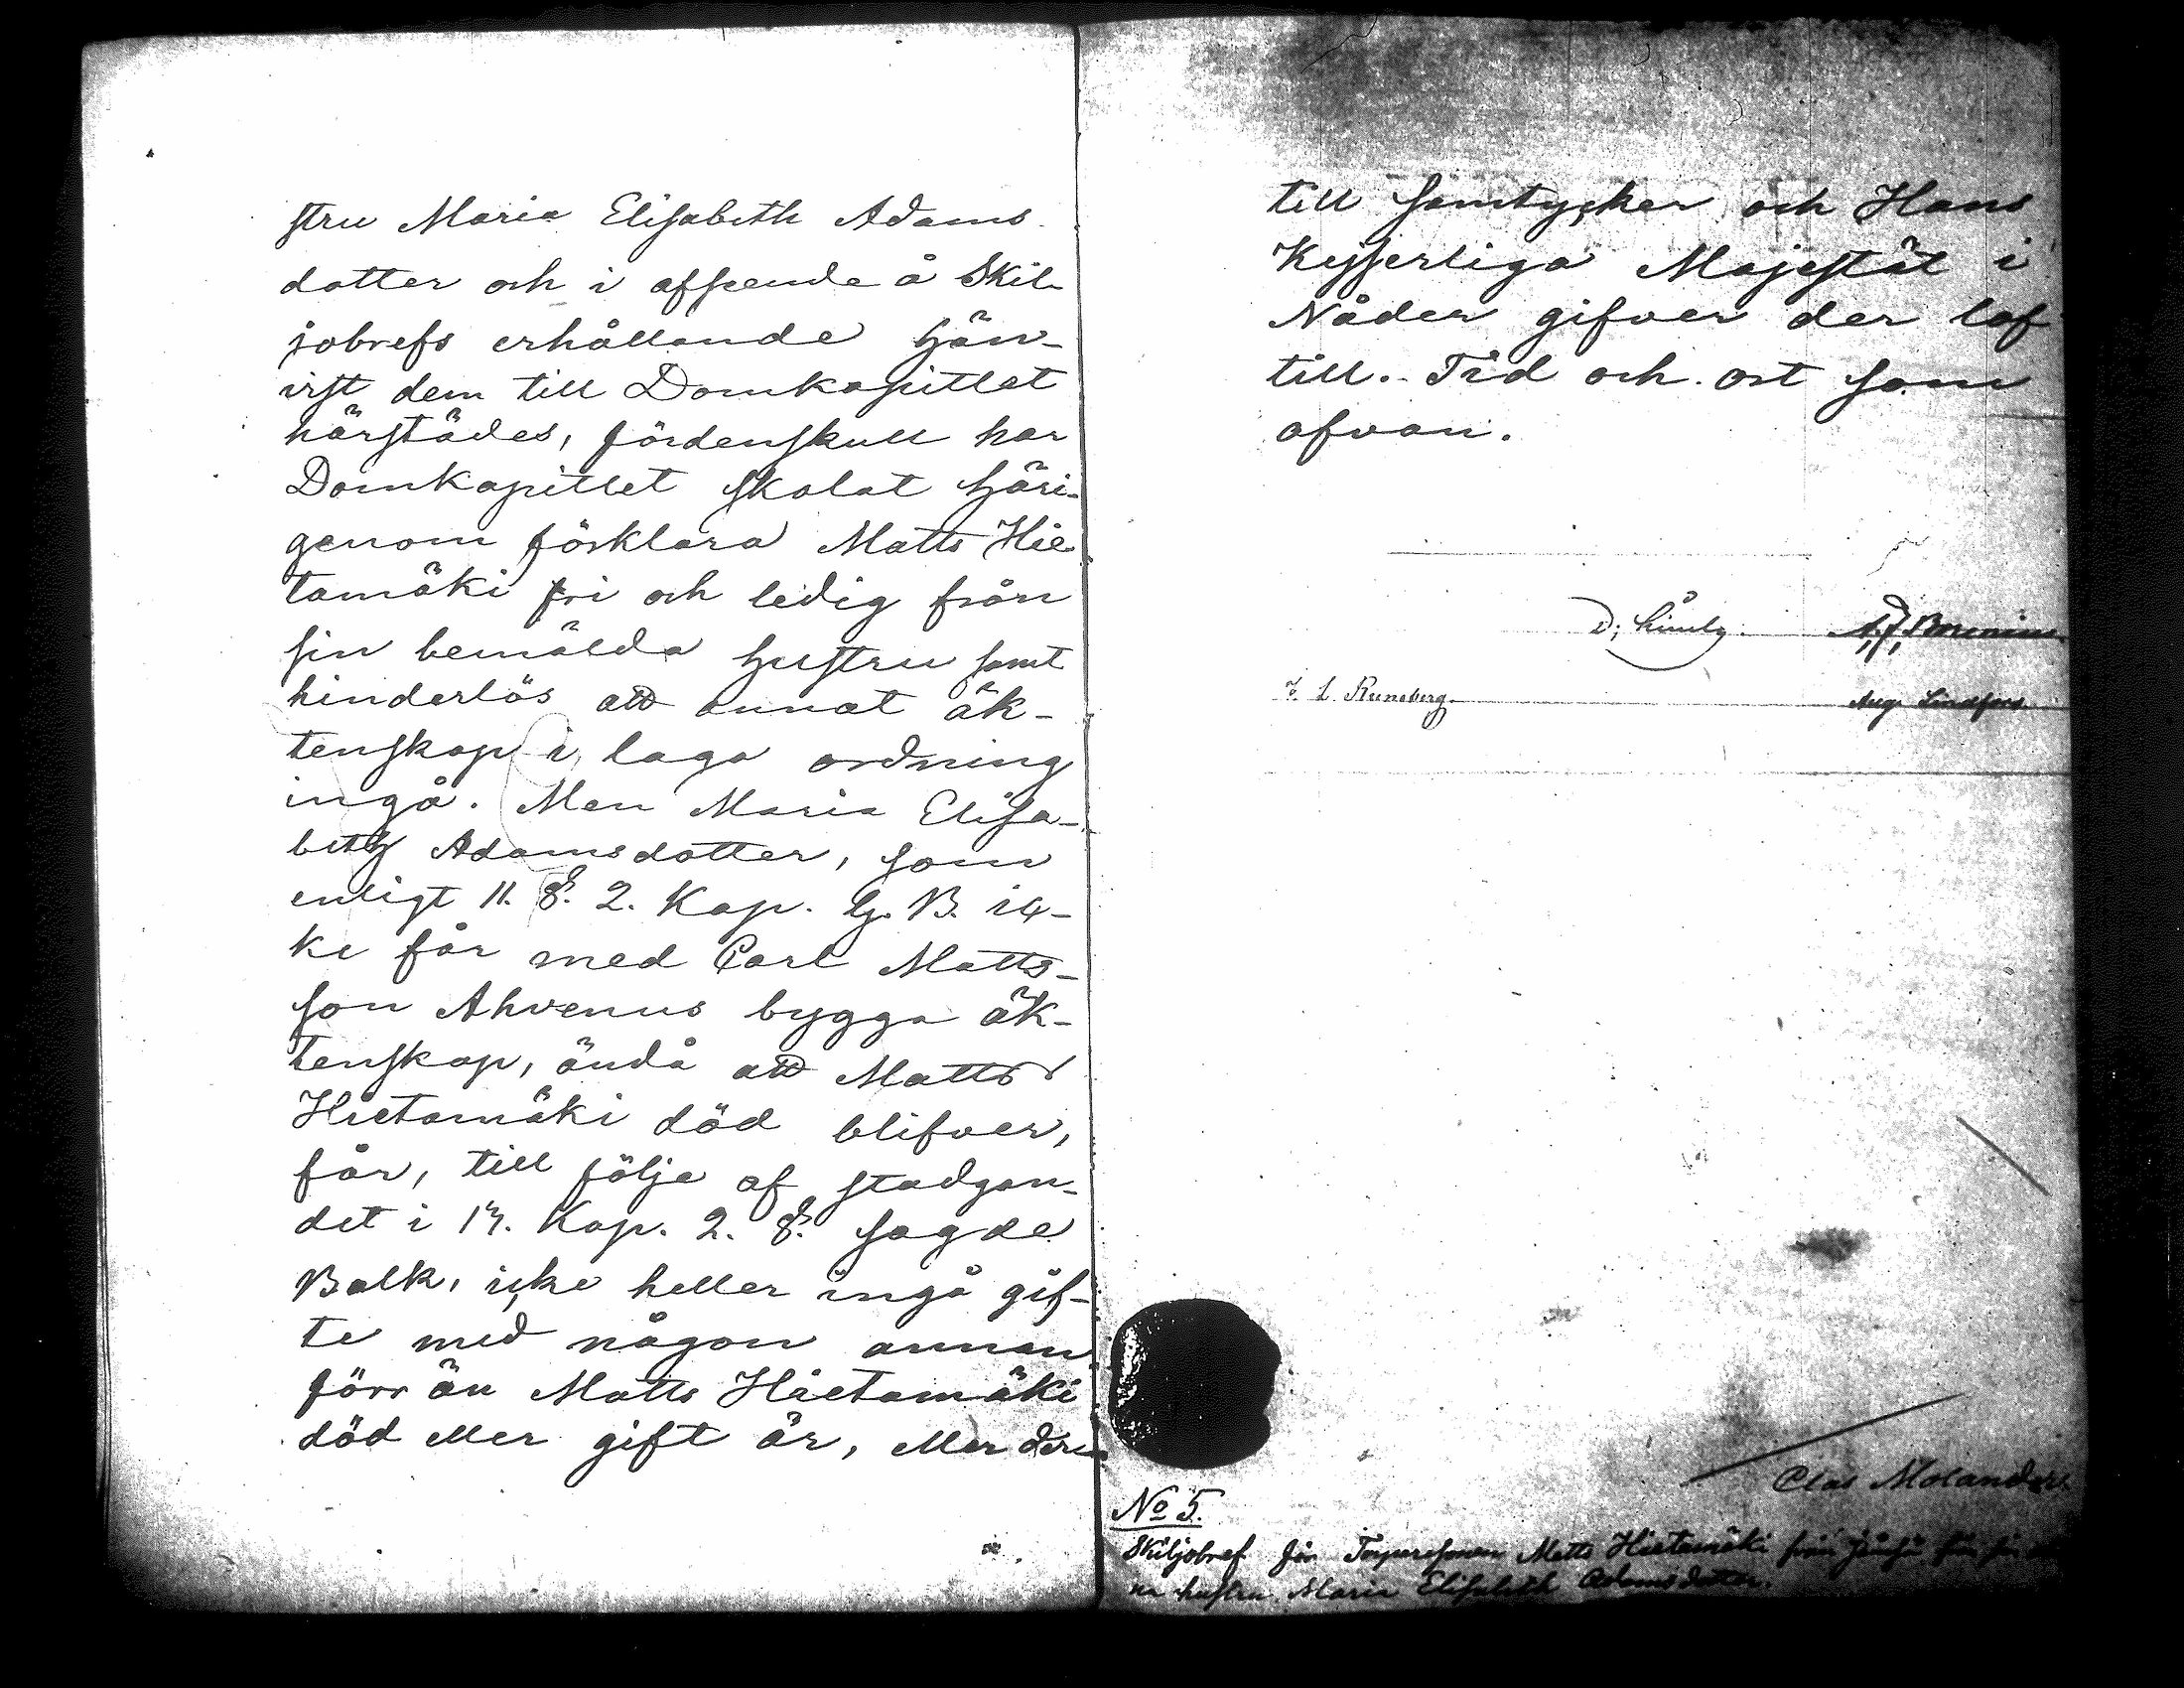 stru Maria Elisabeth Adams
dotter och i afseende å Skil-
jobrefs erhållande hän-
vist dem till Domkapitlet
härstädes, fördenskull har
Domkapitlet skolat häri-
genom förklara Matts Hie-
tamäki fri och ledig från
sin bemälda hustru samt
hinderlös att annat äk-
tenskap i laga ordning
ingå. Men Maria Elisa-
beth Adamsdotter, som
enligt 11. §. 2. Kap. G. B. ic-
ke får med Carl Matts-
son Ahvenus bygga äk-
tenskap, ändå att Matts
Hietamäki död blifver,
får, till följe af stadgan-
det i 13. Kap. 2. §. sagde
Balk, icke heller ingå gif-
te med någon annan
förr än Matts Hietamäki
död eller gift är, eller der-
till samtycker och Hans
Kejserliga Majestät i
Nåder gifver der lof
till. Tid och ort som
ofvan.
J. L. Runeberg.
Aug. Lindfors
Clas Molander
No 5.
Skiljobref för Matts Hietamäki från
hustru Maria Elisabeth Adamsdotter.